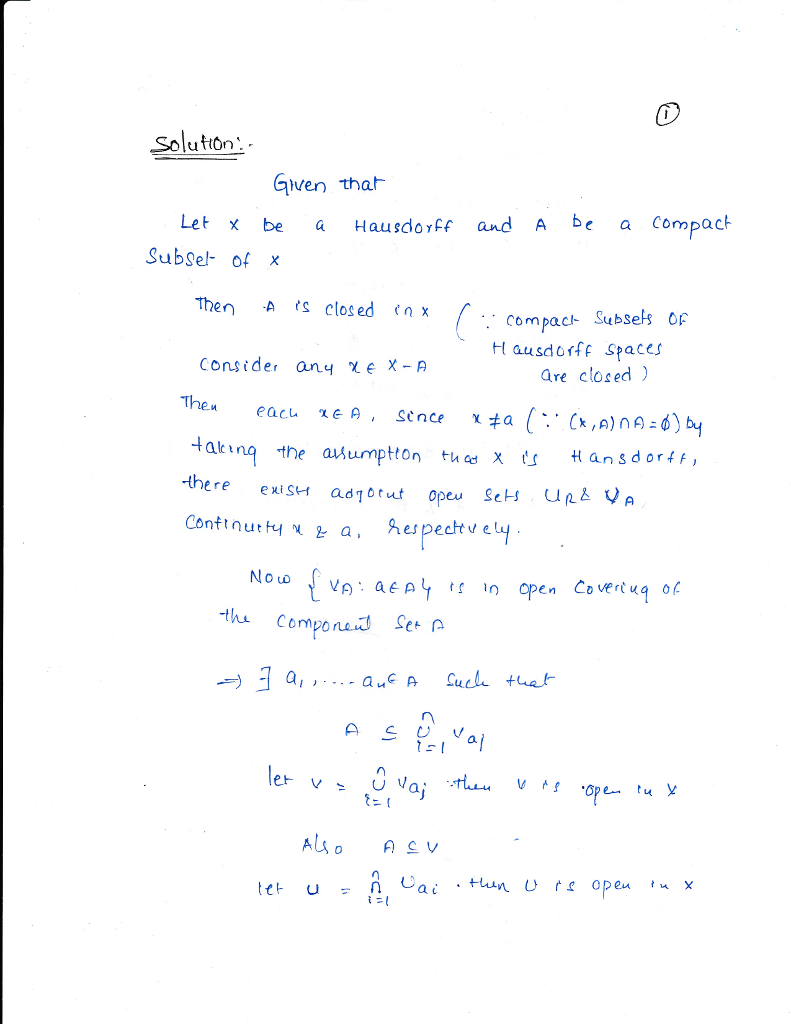 ①
Solution:-
Given that
Let x be a Hausdorff and A be a compact
Subset of x
Then A is closed in x ( ∵ compact Subsets OF
Hausdorff spaces
are closed )
Consider any x ∈ X - A
Then each x ∈ A , since x ≠ a ( ∵ (x, A) ∩ A = ϕ) by
taking the assumption that X is Hansdorff,
there exist open sets &
Continuity x & a, respectively.
Now { VA : a ∈ A} is in open Covering of
the Component Set A
⇒ ∃ a1, ..... an ∈ A Such that
A ⊆ ∪ⁿi=1 Vai
let v = ∪ⁿi=1 Vaj then v is open in X
Also A ⊆ V
let u = ∩ⁿi=1 Uai . then U is open in x